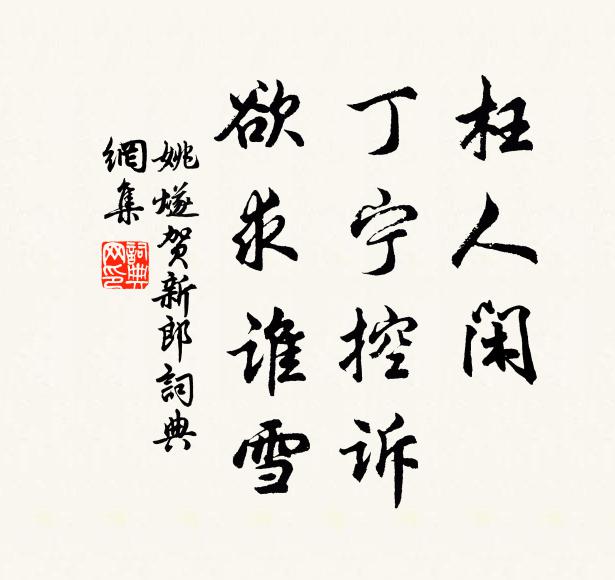 枉人閑
丁宁控诉
欲求谁雪
姚燧贺新郎詞典
網集
詞典網印